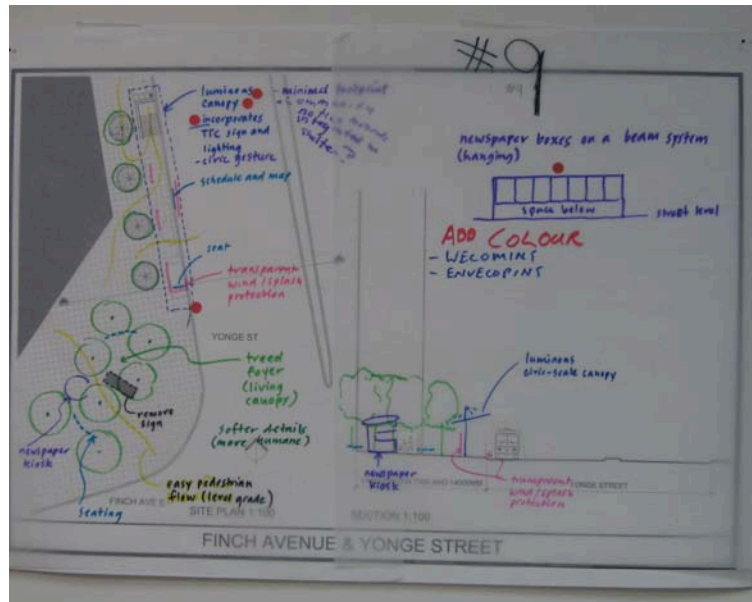 #9
#9
luminous
canopy
incorporates
TTC sign and
lighting
- civic gesture
- minimal footprint
schedule and map
seat
transparent
wind/splash
protection
newspaper boxes on a beam system
(hanging)
space below
street level
ADD COLOUR
- WELCOMING
- ENVELOPING
YONGE ST
treed
foyer
(living
canopy)
remove
sign
newspaper
kiosk
softer details
(more humane)
easy pedestrian
flow (level grade)
seating
FINCH AVE E
SITE PLAN 1:100
luminous
civic-scale canopy
newspaper
kiosk
transparent
wind/splash
protection
YONGE STREET
SECTION 1:100
FINCH AVENUE & YONGE STREET